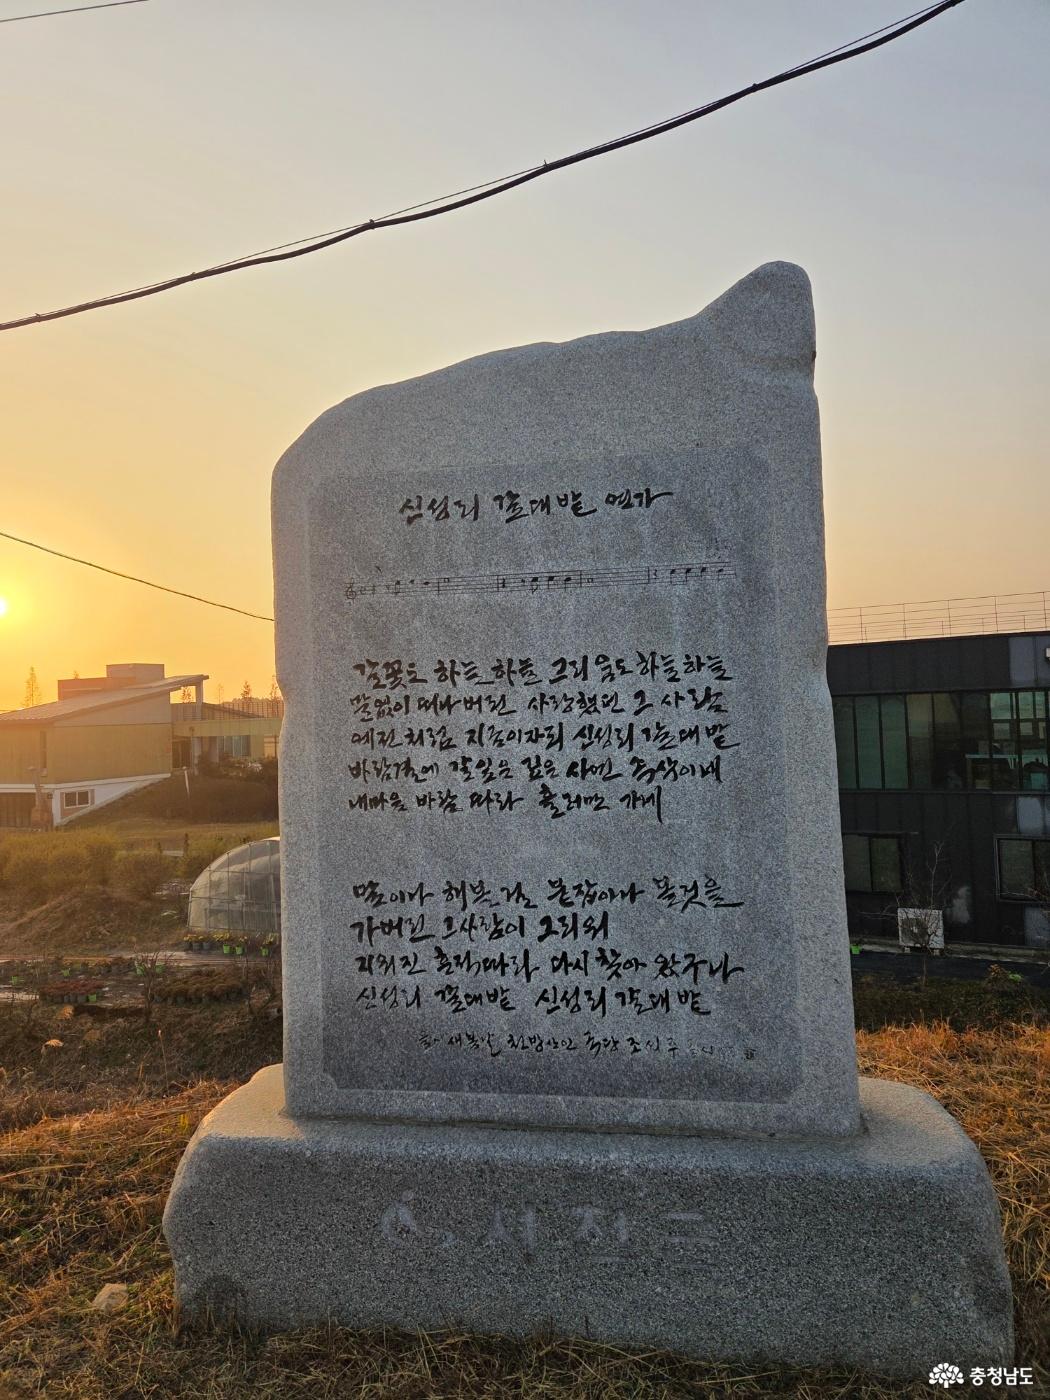 신성리 갈대밭 연가
갈꽃도 하늘하늘 그리움도 하늘하늘
말없이 떠나버린 사랑했던 그 사람
예전처럼 지금이자리 신성리 갈대밭
바람결에 갈잎은 깊은 사변 속삭이네
내마음 바람 따라 흘러만 가네
말이나 해볼걸 붙잡아나 볼것을
가버린 그사람이 그리워
지워진 흔적따라 다시 찾아 왔구나
신성리 갈대밭 신성리 갈대밭
서천군
충청남도